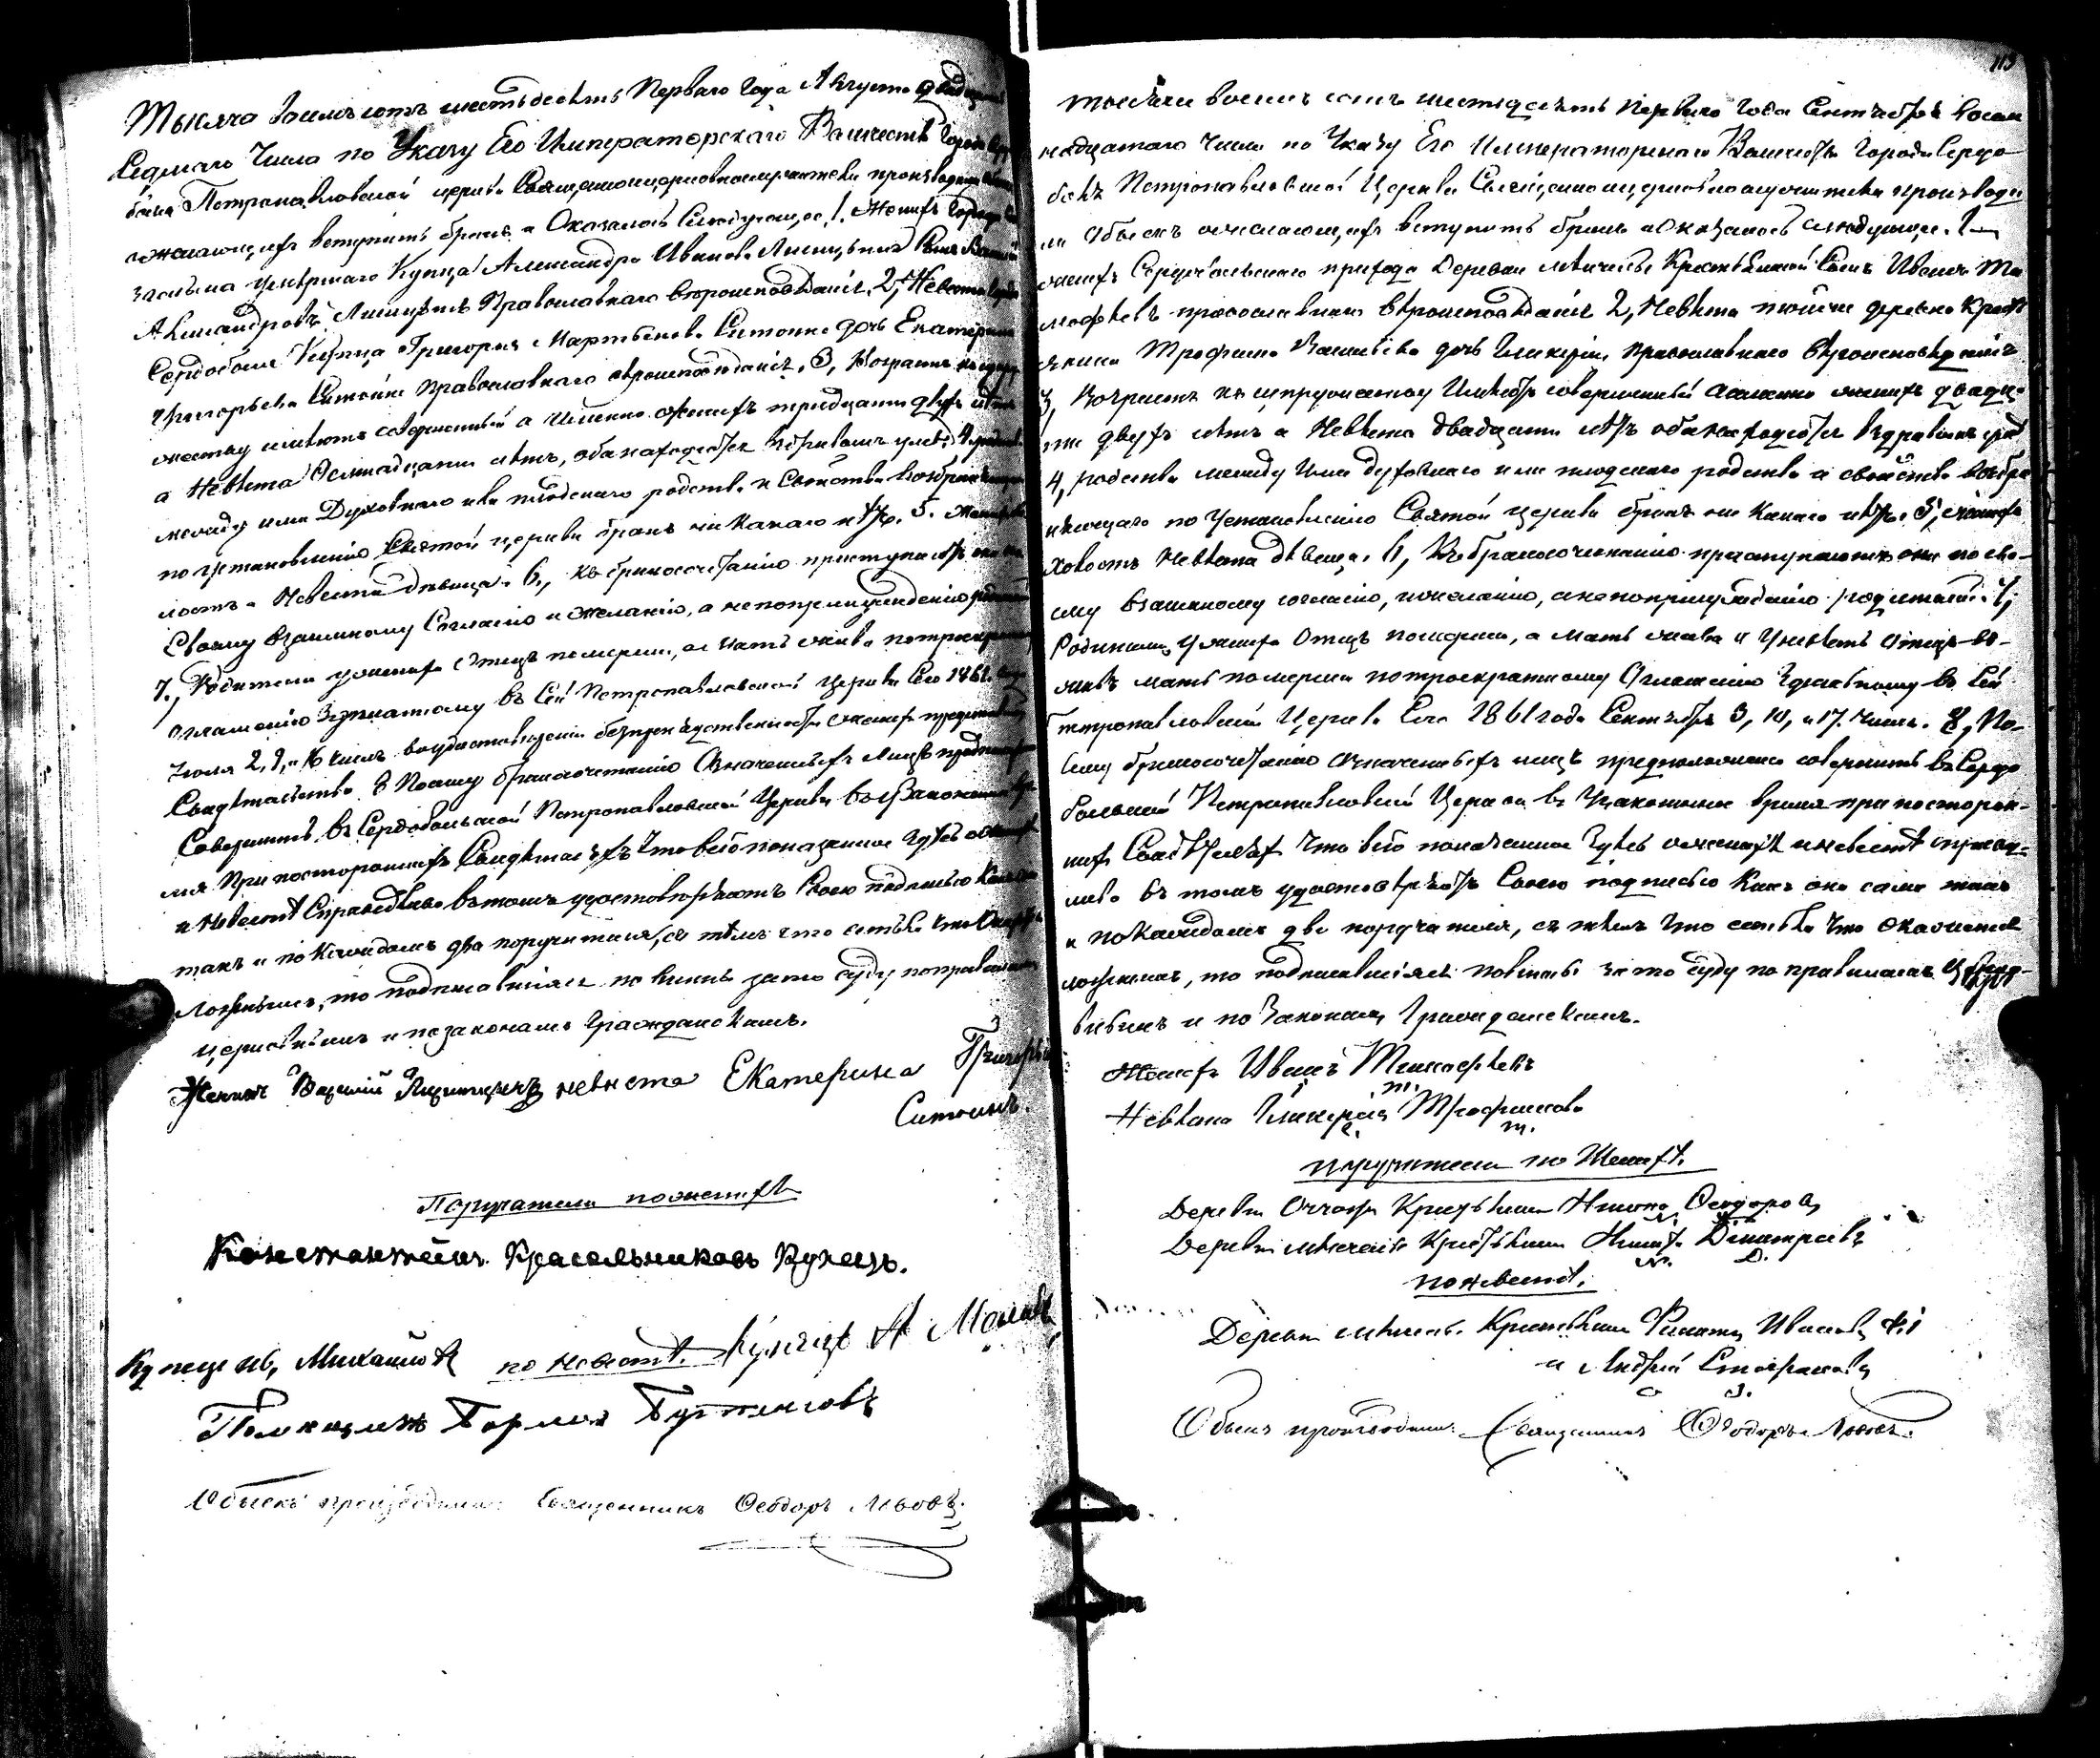 Тысяча восемьсотъ шестьдесятъ Перваго года Августа двадцать
Седмаго Числа по Указу Его Императорскаго Величества Города Сердо
боля Петропавловской церкви Священноцерковнослужители производили обыскъ
о желающихъ вступить бракъ и Оказалось Следующее, 1. Женихъ Города
умершаго Купца Александра Иванова Лисицына Сынъ Василій
Александровъ Лисицынъ Православнаго вѣроисповѣданія, 2, Невѣста Города
Сердоболя Купца Григорія Мартынова Ситонина дочь Екатерина
Григорьева Ситонина Православнаго вѣроисповѣданія. 3, Возрастъ къ супру
жеству имеютъ совершенный а именно женихъ тридцати двухъ лѣтъ
а Невѣста Осмнадцати лѣтъ, оба находятся въ здравомъ умѣ. 4, родства
между ими Духовнаго или плотскаго родства и Свойства возбраняющаго
по установленію Святой церкви бракъ никакаго нѣтъ. 5. Женихъ хо
лостъ а Невеста дѣвица. 6, къ бракосочетанію приступаютъ они по
Своему взаимному Согласію и желанію, а не по принужденію родителей
7, Родители у жениха Отецъ померши, а мать жива по троекратному
оглашенію здѣланному въ Сей Петропавловской Церкви Сего 1861 года
Іюля 2, 9, и 16 числъ въ удостовѣреніи безпрепятственности женихъ представилъ
Свидѣтельство 8 Посему бракосочетанію Означенныхъ Лицъ предположено
Совершить въ Сердобольской Петропавловской Церкви въ узаконенное вре
мя При постороннихъ Свидѣтеляхъ Что всё показанное здѣсь о женихѣ
и Невестѣ Справедливо въ томъ удостовѣряютъ Своею подписью Какъ они
такъ и по каждомъ два поручителя, съ тѣмъ что естьли что Окажется
ложнымъ, то подписавшіяся повинны за то суду по правиламъ
церковнымъ и по законамъ Гражданскимъ.
Женихъ Василій Лисицынъ невѣста Екатерина Григорье
Ситонина.
Поручатели по женихѣ
Константинъ Красельниковъ Купецъ.
Купецъ Ив, Михайловъ по невестѣ. Купецъ А
Обыскъ производилъ: Священникъ Ѳеодоръ Львовъ.
Тысяча восемь сотъ шестдесятъ перваго года Сентября восем
надцатаго числа по Указу Его Императорскаго Величества города Сердо
боля Петропавловской Церкви Священноцерковнослужители производи
ли обыскъ о желающихъ вступить бракъ и оказалось слѣдующее. 1
женихъ Сердобольскаго прихода Деревни Крестьянской Сынъ Иванъ Ти
мофѣевъ православнаго вѣроисповѣданія 2, Невѣста тойже деревни Крест
янина Трофима Васильева дочь Гликерія православнаго вѣроисповѣданія
3, Возрастъ къ супружеству Имѣютъ совершенный а именно женихъ двадца
ти двухъ лѣтъ а Невѣста двадцати лѣтъ оба находятся въ здравомъ умѣ
4, родства между Ими духовнаго или плотскаго родства и свойства возбра
няющаго по Установленію Святой церкви бракъ ни Какаго нѣтъ. 5, женихъ
холостъ Невѣста дѣвица. 6, Къ бракосочетанію приступаютъ они по сво-
ему взаимному согласію, и желанію, а не по принужденію родителей. 7,
Родители, у жениха Отецъ померши, а мать жива и у невѣсты Отецъ
живъ мать померши по троекратному Оглашенію здѣланному въ Сей
Петропавловской Церкви Сего 1861 года Сентября 3, 10, и 17. числъ. 8, По-
сему бракосочетанію означенныхъ лицъ предположено совершить въ Сердо
больской Петропавловской Церкви въ Узаконенное время при посторон-
нихъ Свидѣтеляхъ Что всё показанное здѣсь о женихѣ и невестѣ справед-
ливо въ томъ удостовѣряютъ Своею подписью Какъ они сами такъ
и по Каждомъ два поручателя, съ тѣмъ что естьли Что Окажется
ложнымъ, то подписавшіяся повинны за то суду по правиламъ Церко-
внымъ и по Законамъ Гражданскимъ.
Женихъ Иванъ Тимофѣевъ
Невѣста Гликерія Трофимова
поручители по Женихѣ.
Деревни Крестьянинъ Ѳеодоровъ
Деревни Крестьянинъ Дмитріевъ
по невестѣ.
Деревни Крестьянинъ Ивановъ
и Андрей
Обыскъ производилъ: Священникъ Ѳеодоръ Львовъ.